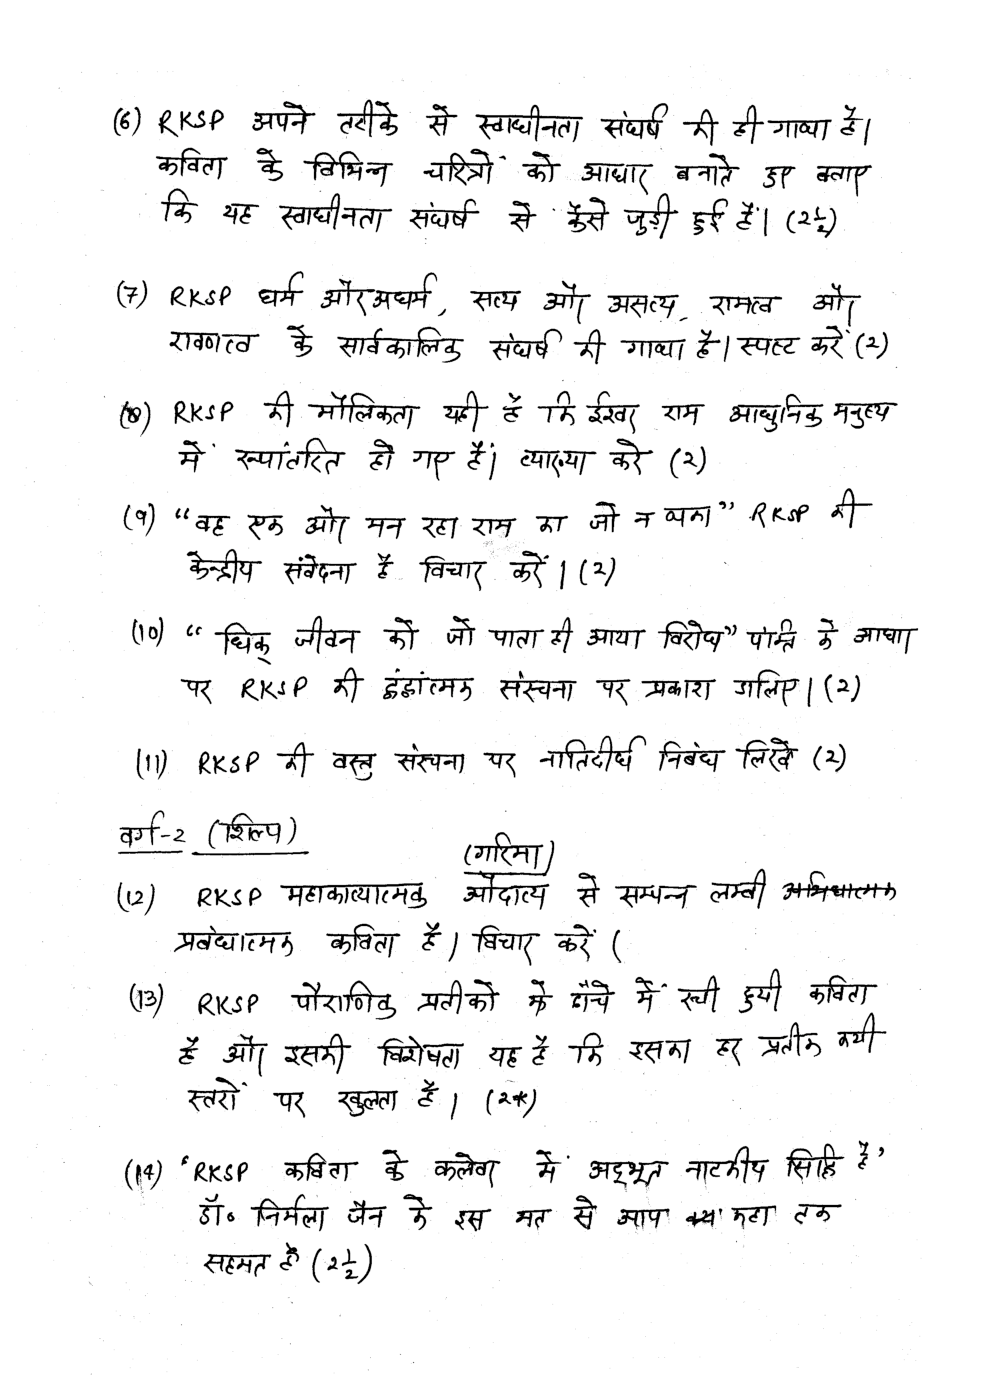 (6) RKSP अपने तरीके से स्वाधीनता संघर्ष की ही गाथा है।
कविता के विभिन्न चरित्रों को आधार बनाते हुए बताएं
कि यह स्वाधीनता संघर्ष से कैसे जुड़ी हुई है। (2½)
(7) RKSP धर्म और अधर्म, सत्य और असत्य, रामत्व और
रावणत्व के सार्वकालिक संघर्ष की गाथा है। स्पष्ट करें (2)
(8) RKSP की मौलिकता यही है कि ईश्वर राम आधुनिक मनुष्य
में रूपांतरित हो गए हैं। व्याख्या करे (2)
(9) “वह एक और मन रहा राम का जो न थका” RKSP की
केन्द्रीय संवेदना है विचार करें। (2)
(10) “धिक् जीवन को जो पाता ही आया विरोध” पंक्ति के आधार
पर RKSP की द्वंद्वांत्मक संरचना पर प्रकाश डालिए। (2)
(11) RKSP की वस्तु संरचना पर नातिदीर्घ निबंध लिखें (2)
वर्ग-2 (शिल्प)
(गरिमा)
(12) RKSP महाकाव्यात्मक औदात्य से सम्पन्न लम्बी
प्रबंधात्मक कविता है। विचार करें (
(13) RKSP पौराणिक प्रतीकों के ढाँचे में रची हुयी कविता
है और इसकी विशेषता यह है कि इसका हर प्रतीक कयी
स्तरों पर खुलता है। (2*)
(14) ‘RKSP कविता के कलेवर में अद्भूत नाटकीय सिद्धि है’
डॉ॰ निर्मला जैन के इस मत से आप कहा तक
सहमत है (2½)